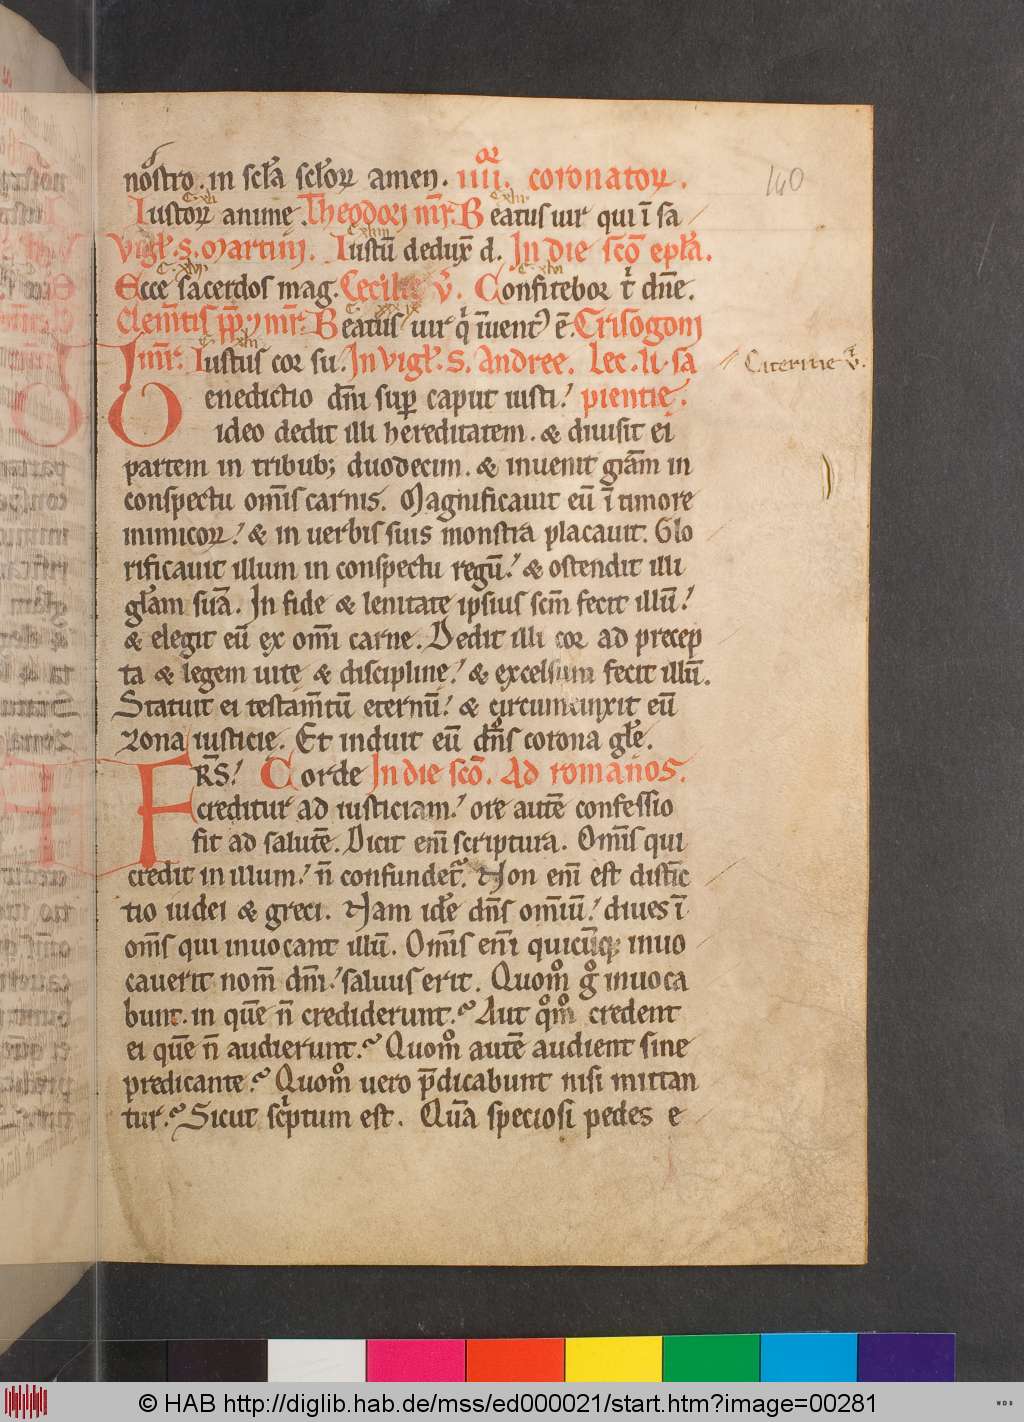 nr̄o. in scl̄a scl̄oꝝ amen. iiiiᵒʳ. coronatoꝝ.
140
Iustoꝝ animę. Theodori mr̄. Beatus uir qui ī sa
Vigl̄. S. Martini. Iustū deduxͭ d. In die scō epl̄a.
Ecce sacerdos mag. Cecilie v̄. Confitebor tͥ dn̄e.
Clem̄tis pp̄ ⁊ mr̄. Beatus uir qͥ īuent᾽ ē. Crisogoni
mr̄. Iustus cor su. In vigl̄. S. Andree. Lec. li. sa
Caterine v̄.
Benedictio dn̄i suꝑ caput iusti. pientię.
ideo dedit illi hereditatem. & diuisit ei
partem in tribub; duodecim. & inuenit gr̄am in
conspectu om̄is carnis. Magnificauit eū ī timore
inimicoꝝ. & in uerbis suis monstra placauit. Glo
rificauit illum in conspectu regū. & ostendit illi
gl̄am suā. In fide & lenitate ipsius scm̄ fecit illū.
& elegit eū ex om̄i carne. Dedit illi cor ad precep
ta & legem uite & discipline. & excelsum fecit illū.
Statuit ei testam̄tū eternū. & circumcinxit eū
zona iusticię. Et induit eū dn̄s corona gl̄e.
FRS̄. Corde In die scō. Ad romanos.
creditur ad iusticiam. ore autē confessio
fit ad salutē. Dicit eni᷑ scriptura. Om̄is qui
credit in illum. n̄ confundetᷣ. Non eni᷑ est distīc
tio iudei & greci. Nam idē dn̄s omiū. diues ī
om̄s qui inuocant illū. Om̄is eni᷑ quicūqꝫ inuo
cauerit nom̄ dn̄i. saluus erit. Quomͦ gͦ inuoca
bunt. in quē n̄ crediderunt. Aut qͦmͦ credent
ei quē n̄ audierunt. Quomͦ autē audient sine
predicante. Quomͦ uero p̄dicabunt nisi mittan
tur. Sicut scͥptum est. Quā speciosi pedes e
© HAB http://diglib.hab.de/mss/ed000021/start.htm?image=00281